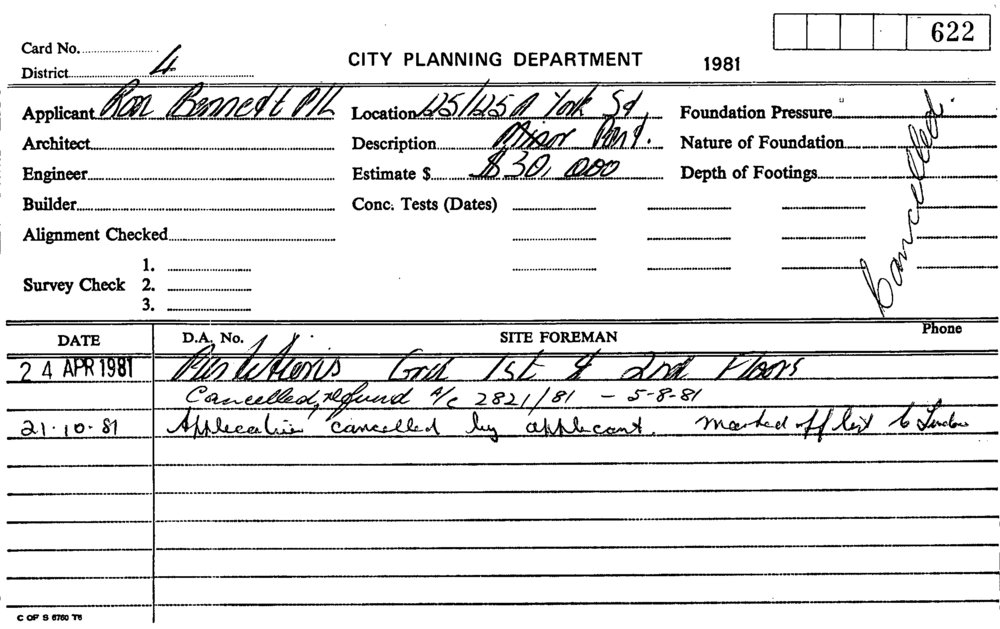 622
Card No.
District 4
CITY PLANNING DEPARTMENT 1981
Applicant Ron Bennett P/L Location 125/125A York St. Foundation Pressure
Architect Description Minor Nature of Foundation
Engineer Estimate $ $30,000 Depth of Footings
Builder Conc. Tests (Dates)
Alignment Checked
Cancelled.
1.
Survey Check 2.
3.
DATE D.A. No. SITE FOREMAN Phone
24 APR 1981 Partitions Grd 1st & 2nd Floors
Cancelled, refund A/c 2821/81 - 5-8-81
21.10.81 Application cancelled by applicant. marked off list
C OF S 6760 T6